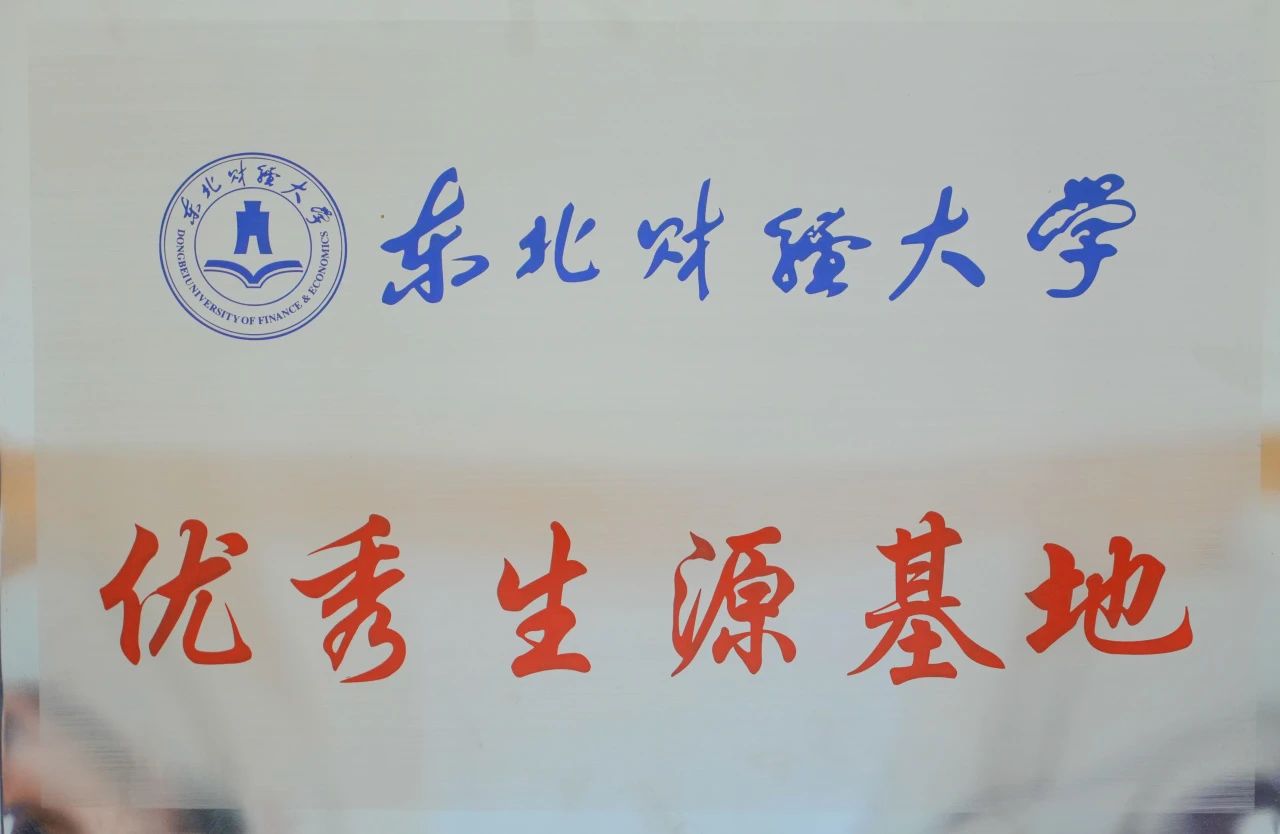 东北财经大学
DONGBEI UNIVERSITY OF FINANCE & ECONOMICS
东北财经大学
优秀生源基地